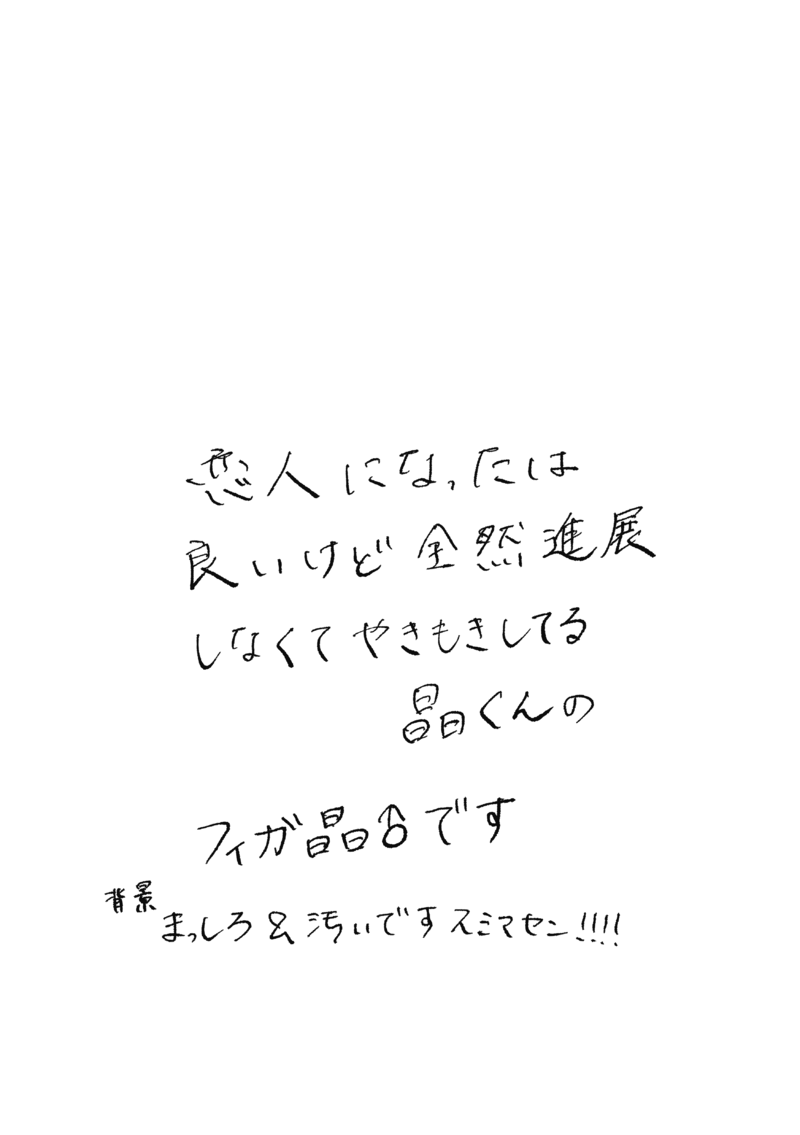 恋人になったは
良いけど全然進展
しなくてやきもきしてる
晶くんの
フィガ晶♂です
背景
まっしろ&汚いですスミマセン!!!!